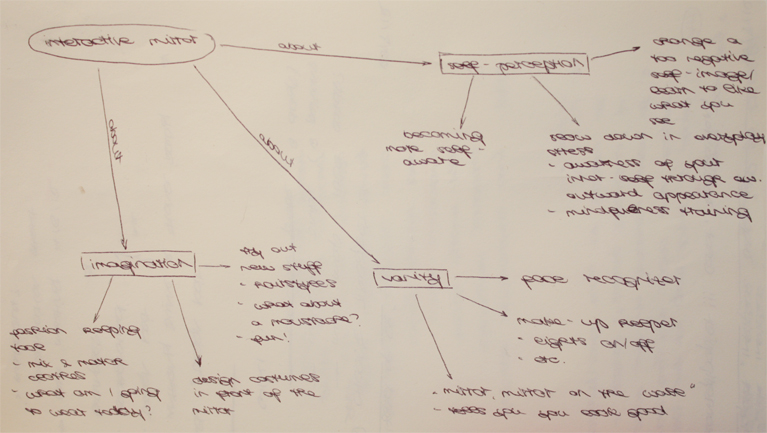 interactive mirror
about
about
about
self-perception
change a
too negative
self-image/
learn to like
what you
see
becoming
more self-
aware
slow down in everyday
stress
- awareness of your
inner-self through
outward appearance
- mindfulness training
imagination
try out
new stuff
- hairstyles
- what about
a moustache?
- fun!
fashion keeping
tool
- mix & match
clothes
- what am I going
to wear today?
design costumes
in front of the
mirror
vanity
face recognizer
make-up keeper
- lights on/off
- etc.
- "mirror, mirror on the wall"
- tells you you look good